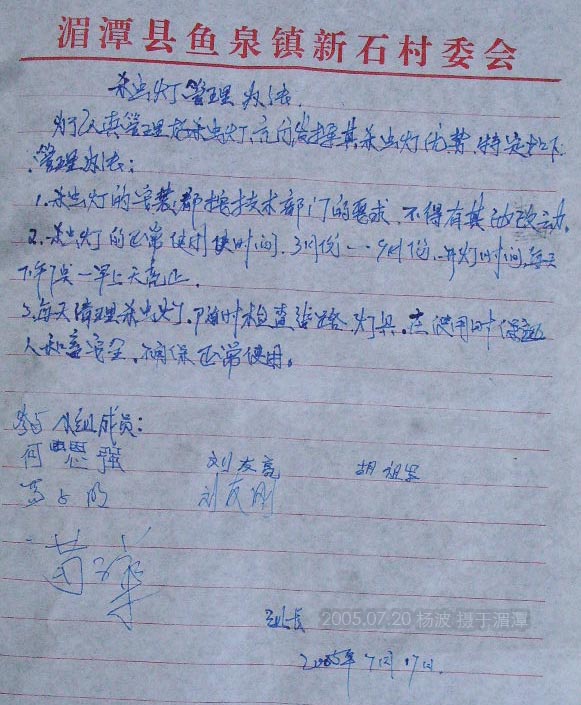 湄潭县鱼泉镇新石村委会
杀虫灯管理办法
为了认真管理好杀虫灯,充分发挥其杀虫灯优势,特定如下
管理办法:
1.杀虫灯的安装都按技术部门的要求,不得有其它改动.
2.杀虫灯的正常使用时间,3月份一9月份,开灯时间,每天
下午7点一早上天亮止.
3.每天清理杀虫灯,随时检查线路灯具,在使用时保证
人和畜安全,确保正常使用。
小组成员:
何思强 刘友亮 胡祖
刘友刚
组长
2005年7月17日.
2005.07.20 杨波 摄于湄潭